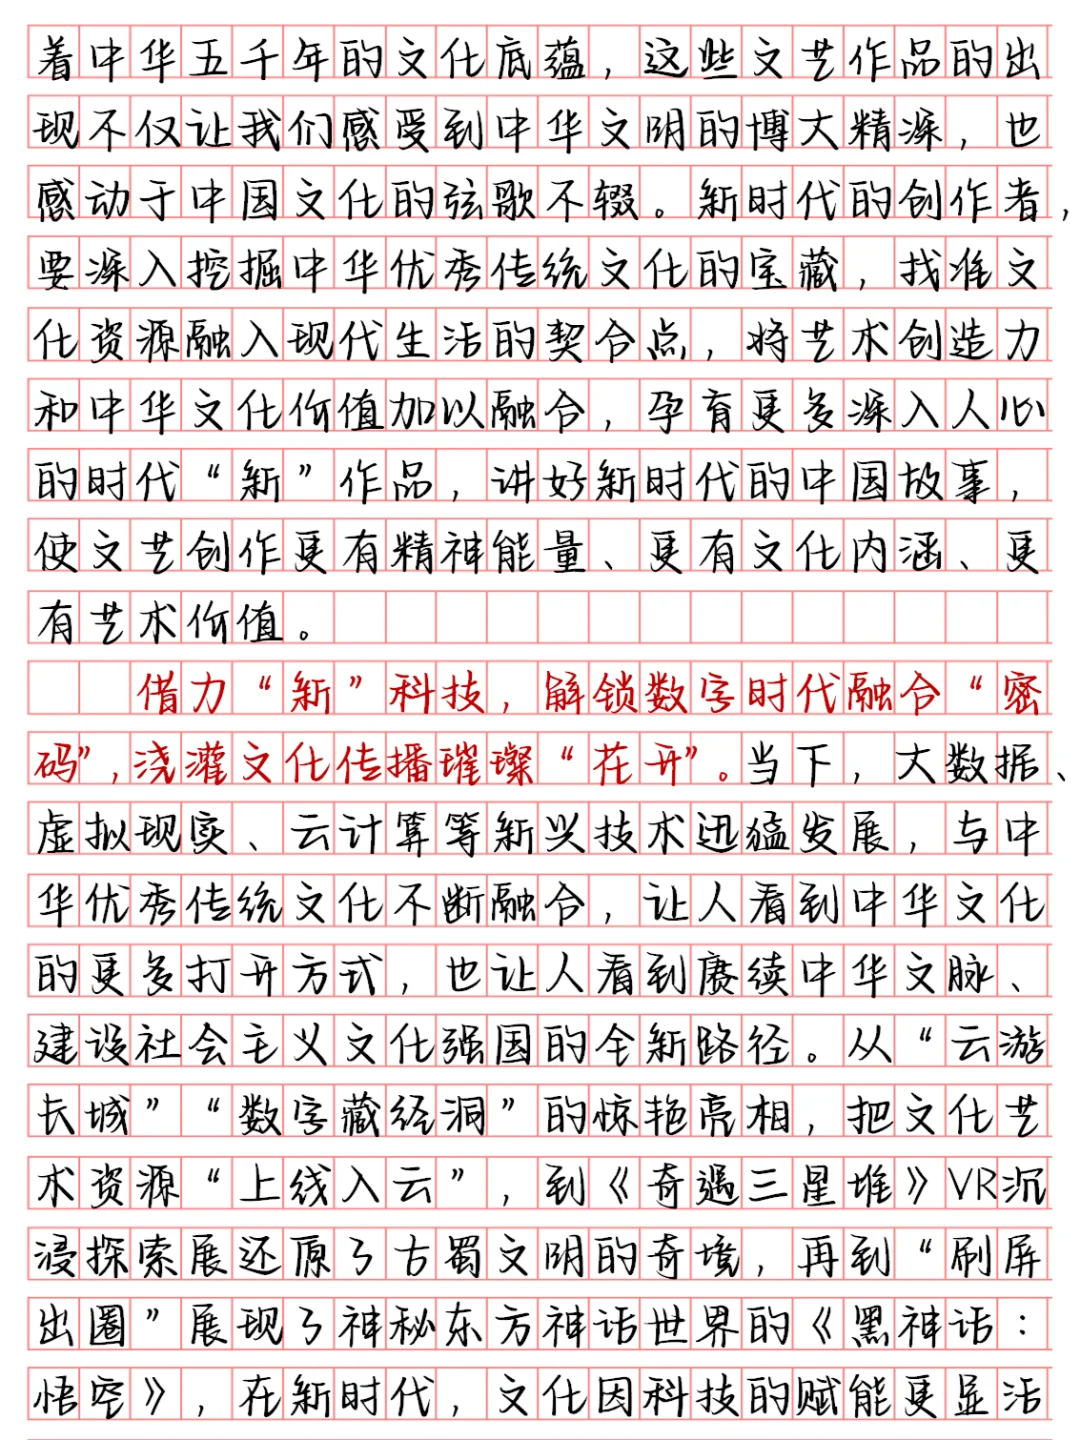 着中华五千年的文化底蕴，这些文艺作品的出
现不仅让我们感受到中华文明的博大精深，也
感动于中国文化的弦歌不辍。新时代的创作者，
要深入挖掘中华优秀传统文化的宝藏，找准文
化资源融入现代生活的契合点，将艺术创造力
和中华文化价值加以融合，孕育更多深入人心
的时代“新”作品，讲好新时代的中国故事，
使文艺创作更有精神能量、更有文化内涵、更
有艺术价值。
借力“新”科技，解锁数字时代融合“密
码”，浇灌文化传播璀璨“花开”。当下，大数据、
虚拟现实、云计算等新兴技术迅猛发展，与中
华优秀传统文化不断融合，让人看到中华文化
的更多打开方式，也让人看到赓续中华文脉、
建设社会主义文化强国的全新路径。从“云游
长城”“数字藏经洞”的惊艳亮相，把文化艺
术资源“上线入云”，到《奇遇三星堆》VR沉
浸探索展还原了古蜀文明的奇境，再到“刷屏
出圈”展现了神秘东方神话世界的《黑神话：
悟空》，在新时代，文化因科技的赋能更显活